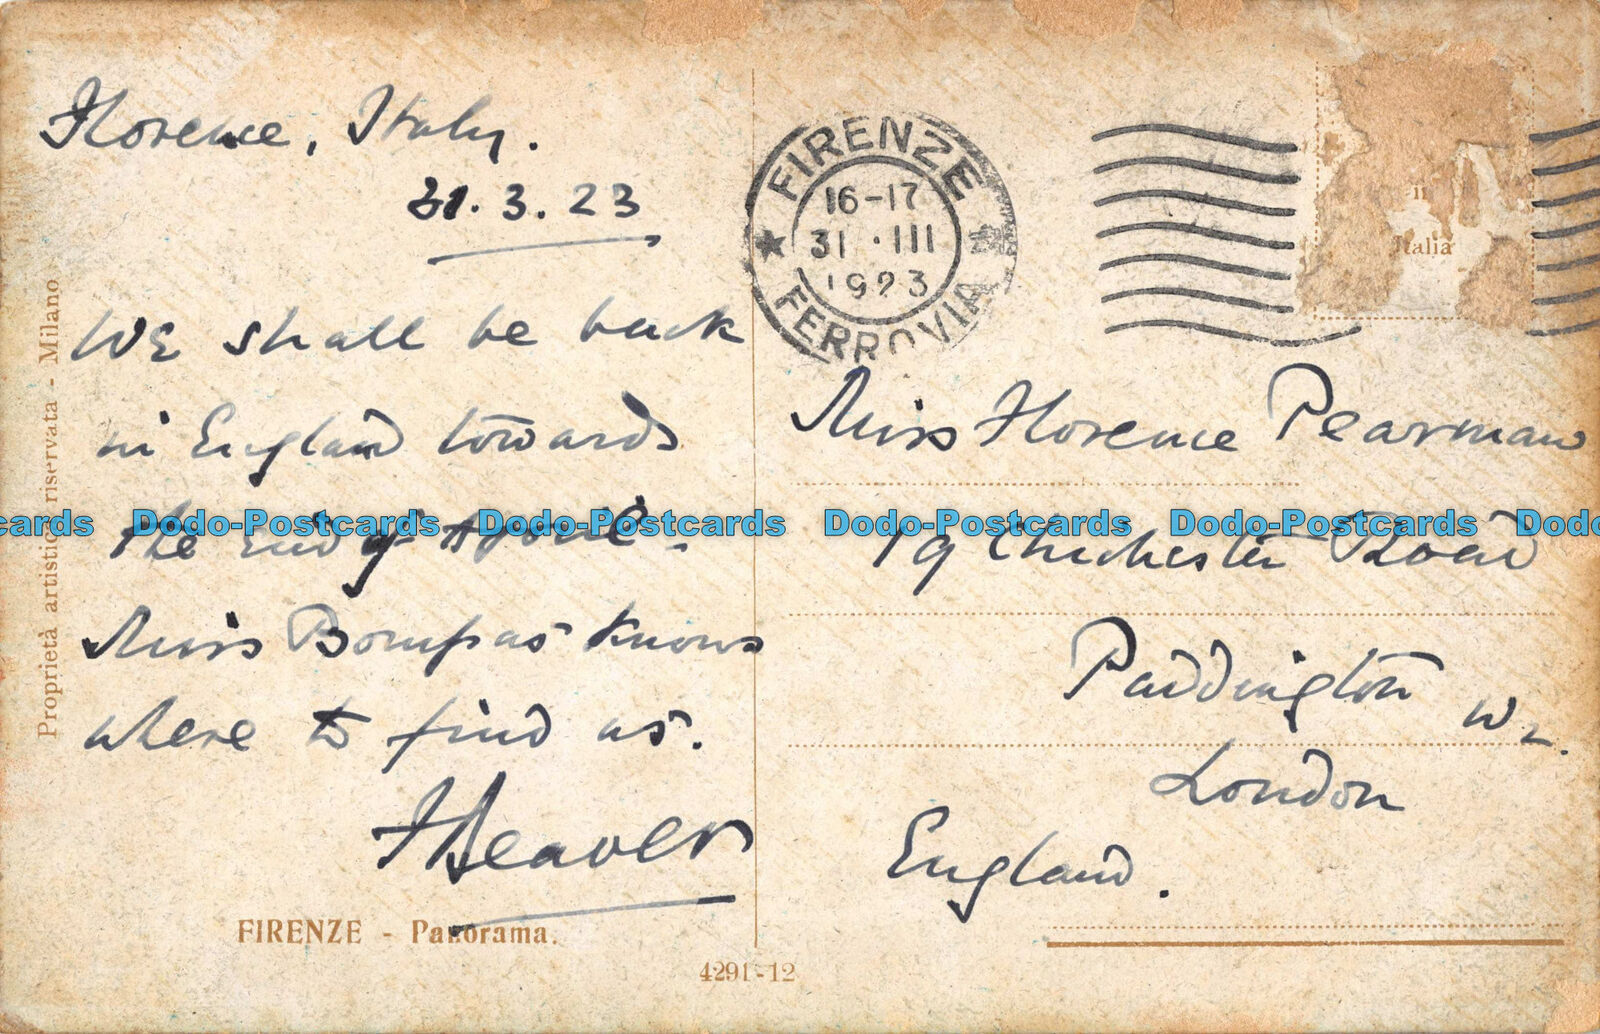 Florence, Italy.
31.3.23
We shall be back
in England towards
the end of April.
Miss Bompas knows
where to find us.
Proprietà artistica riservata - Milano
FIRENZE - Panorama.
4291-12
FIRENZE
16-17
31 · III
1923
FERROVIA
Italia
Miss Florence Pearman
19 Chichester Road
Paddington W2.
London
England.
Dodo-Postcards Dodo-Postcards Dodo-Postcards Dodo-Postcards